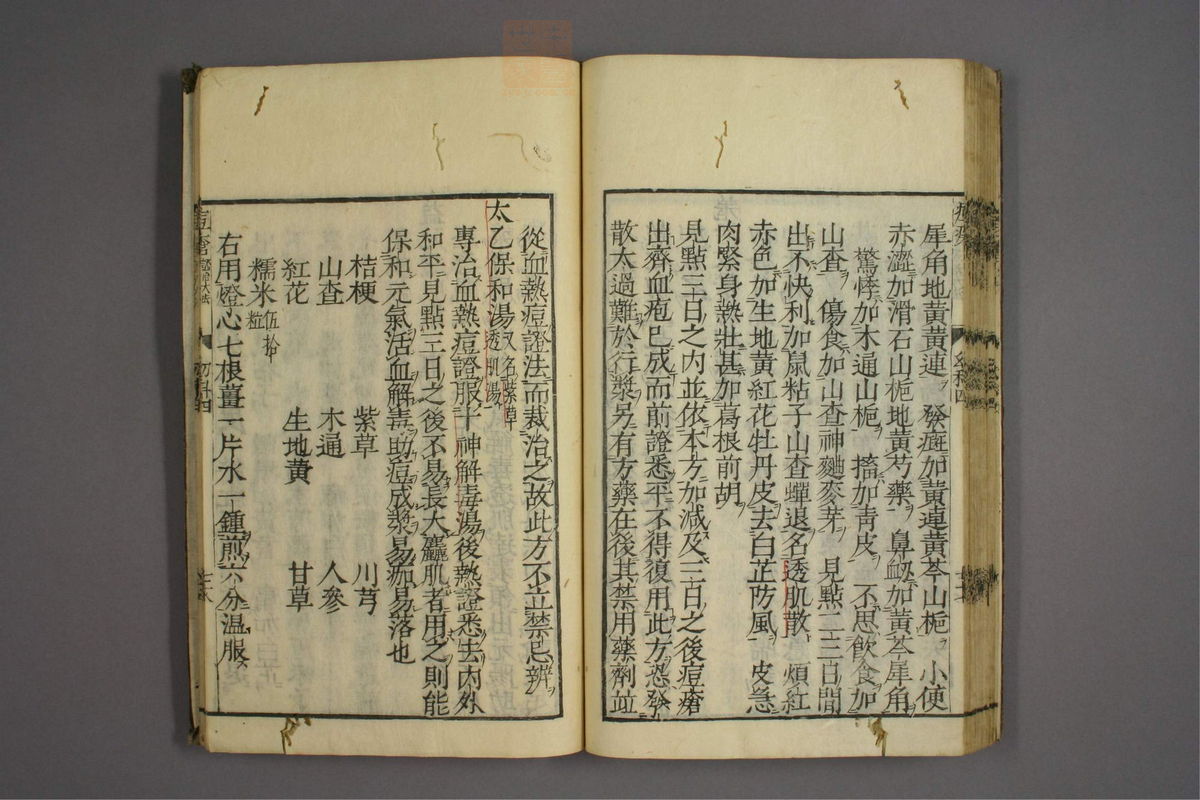 犀角地黃黃連　發癍加黃連黃芩山梔　小便
赤澀加滑石山梔地黃芍藥　鼻衂加黃芩犀角
驚悸加木通山梔　搐加靑皮　不思飮食加
山査　傷食加山査神麯麥芽　見點二三日間
出不快利加鼠粘子山査蟬退名透肌散　煩紅
赤色加生地黃紅花牡丹皮去白芷防風　皮急
肉緊身熱壯甚加葛根前胡
見點三日之內並依本方加減及三日之後痘瘡
出齊血疱已成而前證悉平不得復用此方恐發
散太過難於行漿另有方藥在後其禁用藥劑竝
從血熱痘證法而裁治之故此方不立禁忌辨
太乙保和湯又名紫草透肌湯
專治血熱痘證服十神解毒湯後熱證悉去內外
和平見點三日之後不易長大麤肌者用之則能
保和元氣活血解毒助痘成漿易痂易落也
桔梗　紫草　川芎
山查　木通　人參
紅花　生地黃　甘草
糯米伍拾粒
右用燈心七根薑一片水一鍾煎六分温服